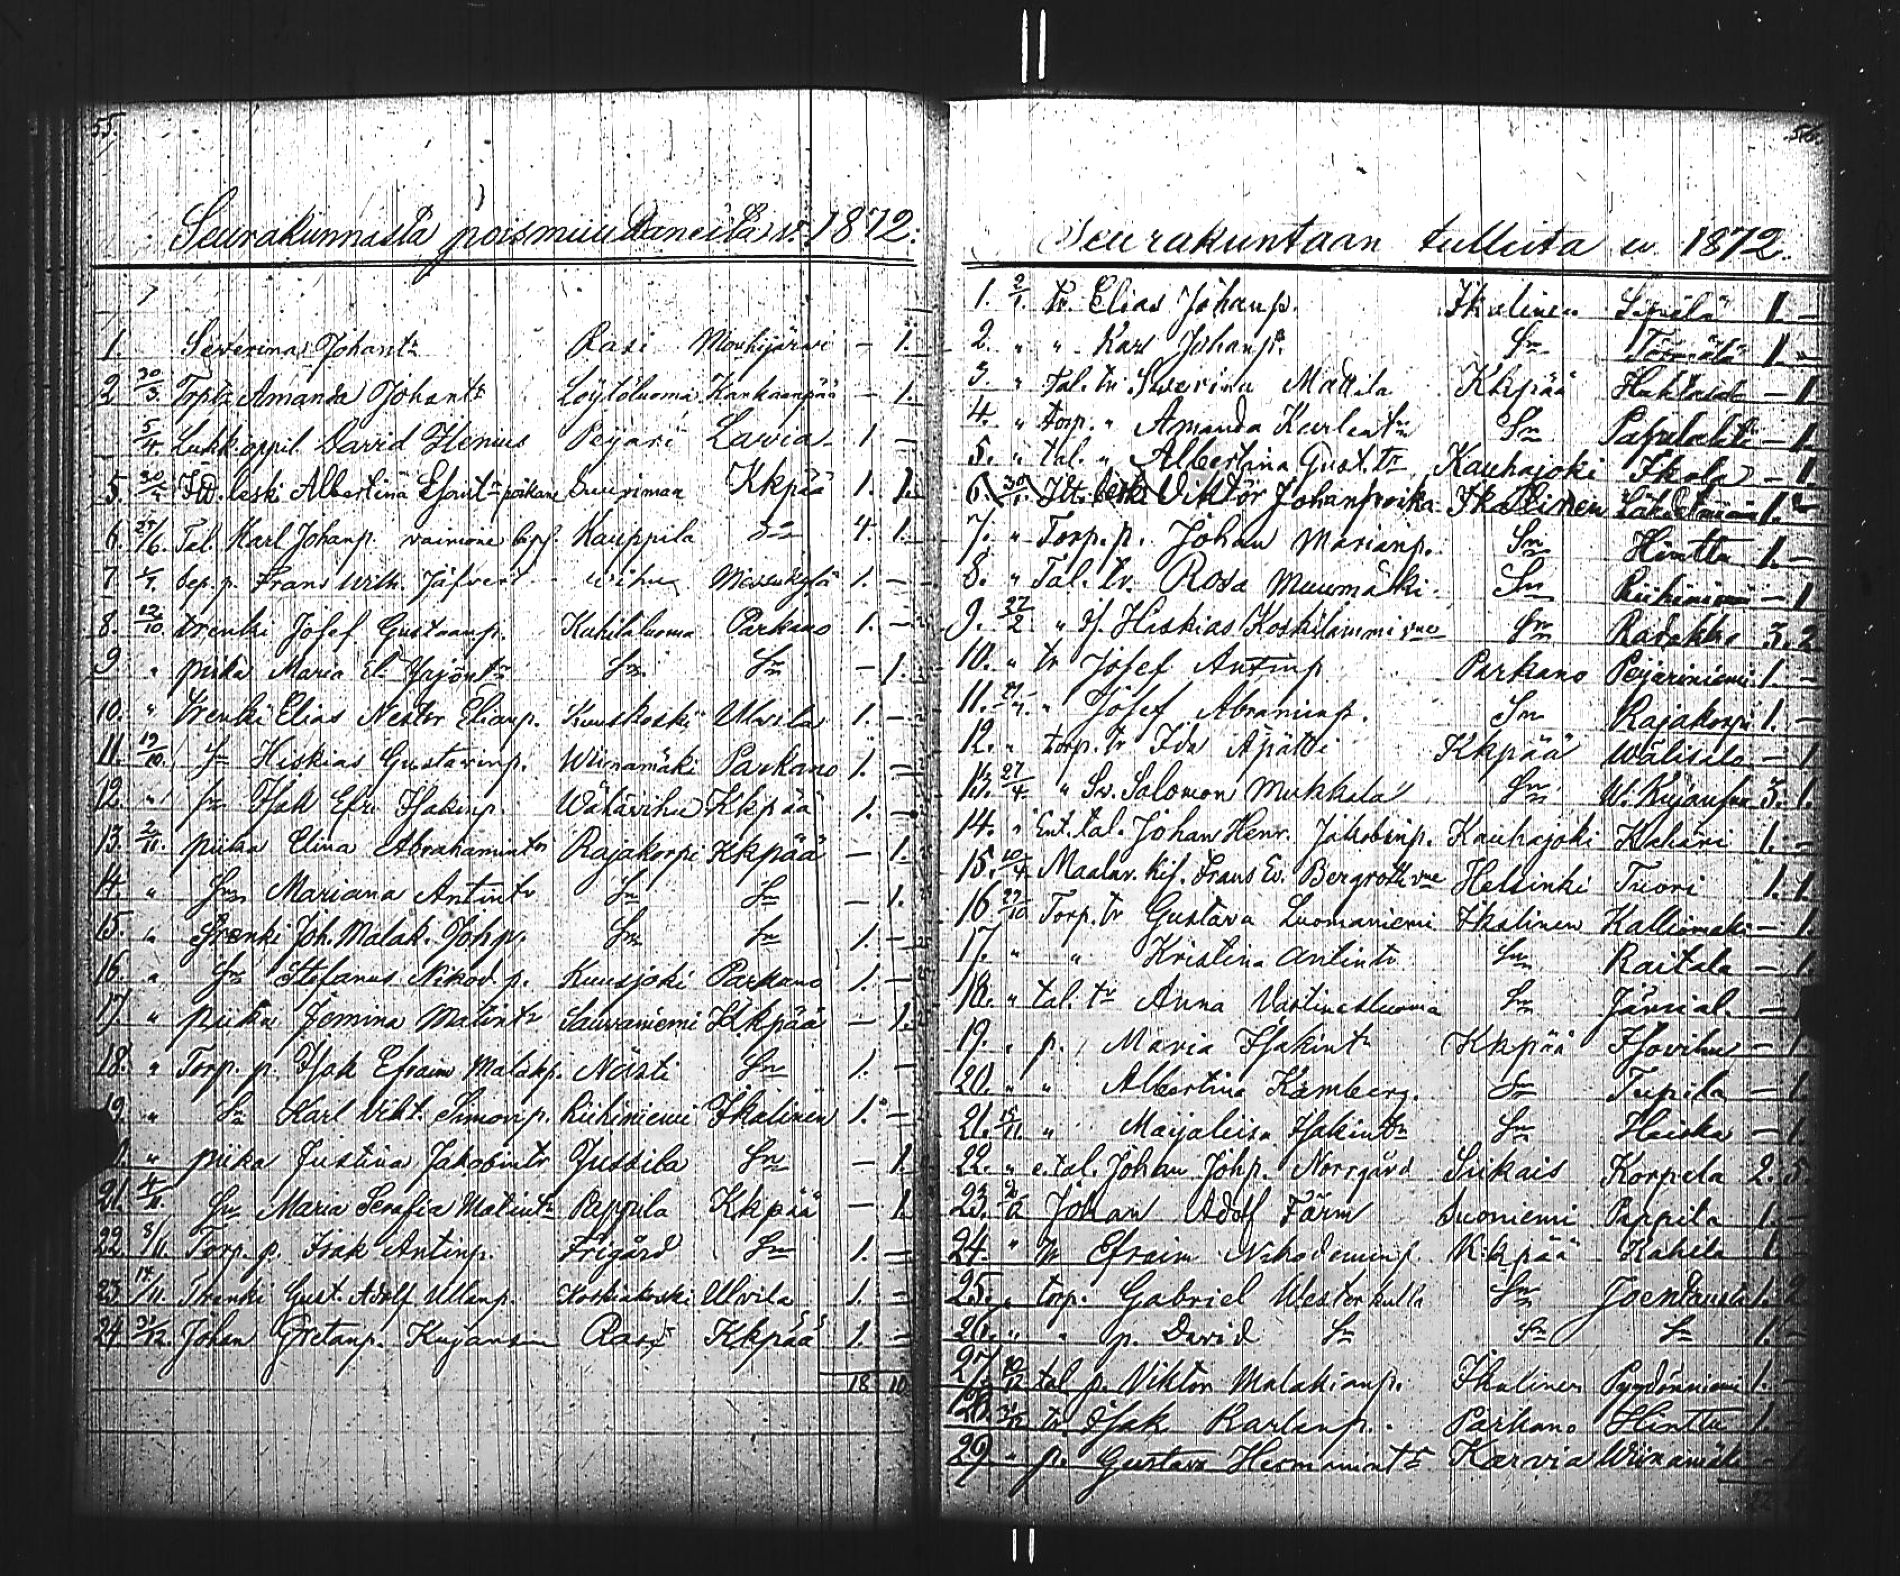 55.
Seurakunnasta poismuuttaneita v. 1872.
1. Severina Johant:r Rasi Mouhijärvi — 1.
2 30/3 Torp.tr Amanda Johant:r Löytöluoma Kankaanpää — 1.
5/4 Lukk.oppil. David Helenius Peijari Lavia 1 —
5. 30/4 Itt. leski Albertina Esaint:r poikane Suuriman Kkpää 1. 1.
6. 27/6 Tal. Karl Johanp. vaimone laps. Kauppila Sn 4. 1.
7 1/7 Sep. p. Frans Wilh. Jäfvert 1. —
8. 12/10 trenki Josef Gustaanp. Kuhilaluoma Parkano 1. —
9 " piika Maria El. Yrjönt:r Sn Sn — 1.
10. " trenki Elias Nestor Elianp. Kuuskoski Ulvila 1. —
11. 19/10 Sn Hiskias Gustavinp. Wiinamäki Parkano 1. —
12. " Sn Isak Efr. Isakinp. Wähävihu Kkpää 1. —
13. 2/11. piika Elina Abrahamintr Rajakorpi Kkpää — 1.
14. " Sn Mariana Antintr Sn Sn — 1.
15. " Trenki Joh. Malak. Johp. Sn Sn 1. —
16. " Sn Stefanus Nikod. p. Kuusjoki Parkano 1. —
17 " piika Jemina Matintr Sauvaniemi Kkpää — 1.
18. " Torp. p. Isak Efraim Malakp. Näisti Sn 1. —
19. " Sn Karl Vikt. Simonp. Riihiniemi Ikalinen 1. —
" piika Justina Jakobintr Jussila Sn — 1.
21. 4/11. Sn Maria Serafia Matintr Pappila Kkpää — 1.
22. 8/11 Torp. p. Isak Antinp. Frigård Sn 1. —
23. 14/11. Trenki Gust. Adolf Ullanp. Koskiakoski Ulvila 1. —
24. 31/12. Johan Gretanp. Kujansuu Rasi Kkpää 1. —
18 10
56.
Seurakuntaan tulleita v. 1872.
1. 2/1. tr. Elias Johanp. Ikalinen Sipilä 1. —
2. " " Karl Johanp. Sn Törmälä 1. —
3. " tal. tr. Severina Mattila Kkpää — 1
4. " torp. " Amanda Kaarlentr Sn — 1.
5. " tal. " Albertina Gust. tr Kauhajoki Ikola — 1.
6. 30/1. Itt. leski Viktor Johanpoika Ikalinen Lähdeniemi 1. —
7. " Torp. p. Johan Marianp. Sn Hintta 1. —
8. " Tal. tr. Rosa Muurmäki. Sn Riihiniemi — 1
9. 27/2 " Is. Hiskias Koskilammi vne Sn 3. 2
10. " tr Josef Antinp Parkano Peijariniemi 1. —
11. " Josef Abraminp. Sn Rajakorpi 1. —
12. " torp. tr Ida Ajätti Kkpää Wälisalo — 1
13. 27/4. " Is. Salomon Mukkala Sn W. Kujansuu 3. 1.
14. " Ent. tal. Johan Henr. Jakobinp. Kauhajoki Kahari 1. —
15. 10/4. Maalar. kis. Frans Ev. Bergroth vne Helsinki Tuori 1. 1.
16 27/10 Torp. tr Gustava Luomaniemi Ikalinen Kalliomäki — 1.
17. " " Kristina Antintr Sn Raitala — 1.
18. " tal. tr Anna Vastinesluoma Sn Järvial. —
19. " p. Maria Isakintr Kkpää Isovihu — 1
20. " " Albertina Kamberg. Sn Tupila — 1.
21. 15/11. " Maijaliisa Isakintr Sn Haiska — 1.
22. " e. tal. Johan Johp. Norrgård Siikais Korpela 2. 5.
23. Johan Adolf Färm Suoniemi Pappila 1. —
24. " tr Efraim Nikodeminp. Kkpää Kahila 1. —
25. " torp. Gabriel Westerkulla Sn Joentausta 1. 2
26. " " p. David Sn Sn Sn 1. —
27. 10/12 tal p. Viktor Malakianp. Ikalinen 1. —
28. 31/12 tr Isak Karlenp. Parkano Hintta 1. —
29 " p. Gustava Hermanint:r Karvia Wiinamäki